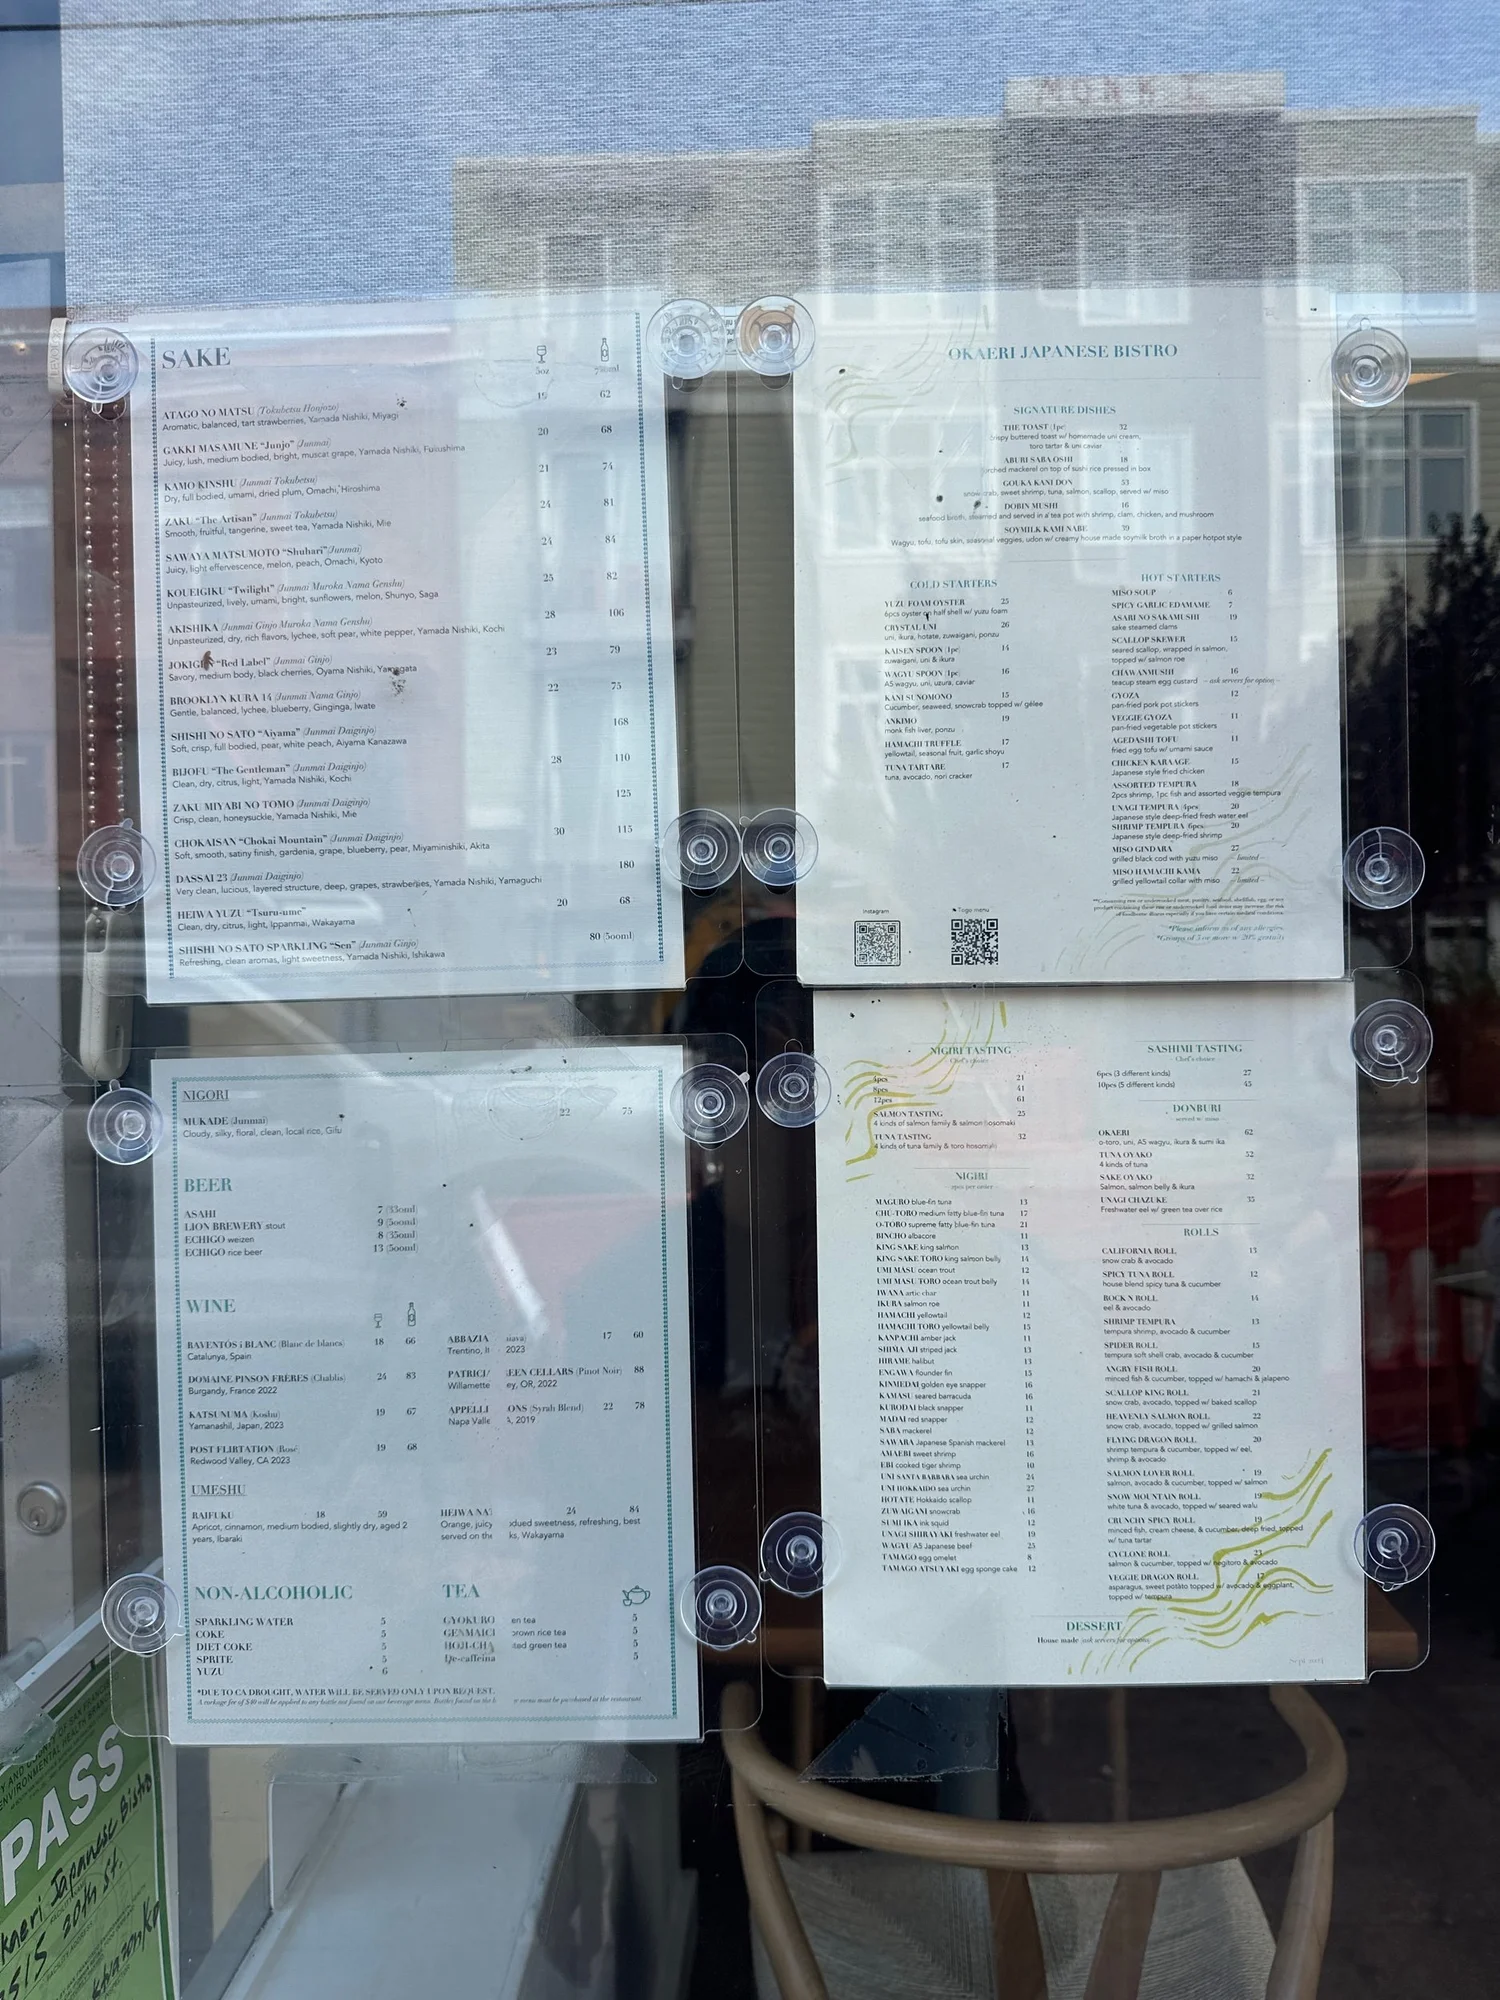 SAKE
5oz 750ml
ATAGO NO MATSU (Tokubetsu Honjozo) 19 62
Aromatic, balanced, tart strawberries, Yamada Nishiki, Miyagi
GAKKI MASAMUNE “Junjo” (Junmai) 20 68
Juicy, lush, medium bodied, bright, muscat grape, Yamada Nishiki, Fukushima
KAMO KINSHU (Junmai Tokubetsu) 21 74
Dry, full bodied, umami, dried plum, Omachi, Hiroshima
ZAKU “The Artisan” (Junmai Tokubetsu) 24 81
Smooth, fruitful, tangerine, sweet tea, Yamada Nishiki, Mie
SAWAYA MATSUMOTO “Shuhari” (Junmai) 24 84
Juicy, light effervescence, melon, peach, Omachi, Kyoto
KOUEIGIKU “Twilight” (Junmai Muroka Nama Genshu) 25 82
Unpasteurized, lively, umami, bright, sunflowers, melon, Shunyo, Saga
AKISHIKA (Junmai Ginjo Muroka Nama Genshu) 28 106
Unpasteurized, dry, rich flavors, lychee, soft pear, white pepper, Yamada Nishiki, Kochi
JOKIGEN “Red Label” (Junmai Ginjo) 23 79
Savory, medium body, black cherries, Oyama Nishiki, Yamagata
BROOKLYN KURA 14 (Junmai Nama Ginjo) 22 75
Gentle, balanced, lychee, blueberry, Ginginga, Iwate
SHISHI NO SATO “Aiyama” (Junmai Daiginjo) 168
Soft, crisp, full bodied, pear, white peach, Aiyama Kanazawa
BIJOFU “The Gentleman” (Junmai Daiginjo) 28 110
Clean, dry, citrus, light, Yamada Nishiki, Kochi
ZAKU MIYABI NO TOMO (Junmai Daiginjo) 125
Crisp, clean, honeysuckle, Yamada Nishiki, Mie
CHOKAISAN “Chokai Mountain” (Junmai Daiginjo) 30 115
Soft, smooth, satiny finish, gardenia, grape, blueberry, pear, Miyaminishiki, Akita
DASSAI 23 (Junmai Daiginjo) 180
Very clean, lucious, layered structure, deep, grapes, strawberries, Yamada Nishiki, Yamaguchi
HEIWA YUZU “Tsuru-ume” 20 68
Clean, dry, citrus, light, Ippanmai, Wakayama
SHISHI NO SATO SPARKLING “Sen” (Junmai Ginjo) 80 (500ml)
Refreshing, clean aromas, light sweetness, Yamada Nishiki, Ishikawa
OKAERI JAPANESE BISTRO
SIGNATURE DISHES
THE TOAST (1pc) 32
crispy buttered toast w/ homemade uni cream,
toro tartar & uni caviar
ABURI SABA OSHI 18
torched mackerel on top of sushi rice pressed in box
GOUKA KANI DON 53
snow crab, sweet shrimp, tuna, salmon, scallop, served w/ miso
DOBIN MUSHI 16
seafood broth, steamed and served in a tea pot with shrimp, clam, chicken, and mushroom
SOYMILK KAMI NABE 39
Wagyu, tofu, tofu skin, seasonal veggies, udon w/ creamy house made soymilk broth in a paper hotpot style
COLD STARTERS
YUZU FOAM OYSTER 25
6pcs oyster on half shell w/ yuzu foam
CRYSTAL UNI 26
uni, ikura, hotate, zuwaigani, ponzu
KAISEN SPOON (1pc) 14
zuwaigani, uni & ikura
WAGYU SPOON (1pc) 16
A5 wagyu, uni, uzura, caviar
KANI SUNOMONO 15
Cucumber, seaweed, snowcrab topped w/ gelee
ANKIMO 19
monk fish liver, ponzu
HAMACHI TRUFFLE 17
yellowtail, seasonal fruit, garlic shoyu
TUNA TARTARE 17
tuna, avocado, nori cracker
HOT STARTERS
MISO SOUP 6
SPICY GARLIC EDAMAME 7
ASARI NO SAKAMUSHI 19
sake steamed clams
SCALLOP SKEWER 15
seared scallop, wrapped in salmon,
topped w/ salmon roe
CHAWANMUSHI 16
teacup steam egg custard – ask servers for option –
GYOZA 12
pan-fried pork pot stickers
VEGGIE GYOZA 11
pan-fried vegetable pot stickers
AGEDASHI TOFU 11
fried egg tofu w/ umami sauce
CHICKEN KARAAGE 15
Japanese style fried chicken
ASSORTED TEMPURA 18
2pcs shrimp, 1pc fish and assorted veggie tempura
UNAGI TEMPURA (4pcs) 20
Japanese style deep-fried fresh water eel
SHRIMP TEMPURA (6pcs) 20
Japanese style deep-fried shrimp
MISO GINDARA 27
grilled black cod with yuzu miso – limited –
MISO HAMACHI KAMA 22
grilled yellowtail collar with miso – limited –
**Consuming raw or undercooked meat, poultry, seafood, shellfish, egg, or any
product containing these raw or undercooked food items may increase the risk
of foodborne illness especially if you have certain medical conditions.
*Please inform us of any allergies.
*Groups of 5 or more w/ 20% gratuity
Instagram
Togo menu
NIGORI
MUKADE (Junmai) 22 75
Cloudy, silky, floral, clean, local rice, Gifu
BEER
ASAHI 7 (330ml)
LION BREWERY stout 9 (500ml)
ECHIGO weizen 8 (350ml)
ECHIGO rice beer 13 (500ml)
WINE
RAVENTÓS i BLANC (Blanc de blancs) 18 66
Catalunya, Spain
DOMAINE PINSON FRÈRES (Chablis) 24 83
Burgandy, France 2022
KATSUNUMA (Koshu) 19 67
Yamanashil, Japan, 2023
POST FLIRTATION (Rosé) 19 68
Redwood Valley, CA 2023
ABBAZIA 17 60
Trentino, It 2023
PATRICI EEN CELLARS (Pinot Noir) 88
Willamette ey, OR, 2022
APPELLI ONS (Syrah Blend) 22 78
Napa Valle A, 2019
UMESHU
RAIFUKU 18 59
Apricot, cinnamon, medium bodied, slightly dry, aged 2
years, Ibaraki
HEIWA NA 24 84
Orange, juicy dued sweetness, refreshing, best
served on the ks, Wakayama
NON-ALCOHOLIC
SPARKLING WATER 5
COKE 5
DIET COKE 5
SPRITE 5
YUZU 6
TEA
GYOKURO en tea 5
GENMAICI brown rice tea 5
HOJI-CHA ted green tea 5
De-caffeina 5
*DUE TO CA DROUGHT, WATER WILL BE SERVED ONLY UPON REQUEST.
A corkage fee of $40 will be applied to any bottle not found on our beverage menu. Bottles found on the menu must be purchased at the restaurant.
NIGIRI TASTING
Chef's choice
4pcs 21
8pcs 41
12pcs 61
SALMON TASTING 25
4 kinds of salmon family & salmon hosomaki
TUNA TASTING 32
4 kinds of tuna family & toro hosomaki
NIGIRI
2pcs per order
MAGURO blue-fin tuna 13
CHU-TORO medium fatty blue-fin tuna 17
O-TORO supreme fatty blue-fin tuna 21
BINCHO albacore 11
KING SAKE king salmon 13
KING SAKE TORO king salmon belly 14
UMI MASU ocean trout 12
UMI MASU TORO ocean trout belly 14
IWANA artic char 11
IKURA salmon roe 11
HAMACHI yellowtail 12
HAMACHI TORO yellowtail belly 15
KANPACHI amber jack 11
SHIMA AJI striped jack 13
HIRAME halibut 13
ENGAWA flounder fin 15
KINMEDAI golden eye snapper 16
KAMASU seared barracuda 16
KURODAI black snapper 11
MADAI red snapper 12
SABA mackerel 12
SAWARA Japanese Spanish mackerel 13
AMAEBI sweet shrimp 16
EBI cooked tiger shrimp 10
UNI SANTA BARBARA sea urchin 24
UNI HOKKAIDO sea urchin 27
HOTATE Hokkaido scallop 11
ZUWAIGANI snowcrab 16
SUMI IKA ink squid 12
UNAGI SHIRAYAKI freshwater eel 19
WAGYU A5 Japanese beef 25
TAMAGO egg omelet 8
TAMAGO ATSUYAKI egg sponge cake 12
SASHIMI TASTING
Chef's choice
6pcs (3 different kinds) 27
10pcs (5 different kinds) 45
DONBURI
served w/ miso
OKAERI 62
o-toro, uni, A5 wagyu, ikura & sumi ika
TUNA OYAKO 52
4 kinds of tuna
SAKE OYAKO 32
Salmon, salmon belly & ikura
UNAGI CHAZUKE 35
Freshwater eel w/ green tea over rice
ROLLS
CALIFORNIA ROLL 13
snow crab & avocado
SPICY TUNA ROLL 12
house blend spicy tuna & cucumber
ROCK N ROLL 14
eel & avocado
SHRIMP TEMPURA 13
tempura shrimp, avocado & cucumber
SPIDER ROLL 15
tempura soft shell crab, avocado & cucumber
ANGRY FISH ROLL 20
minced fish & cucumber, topped w/ hamachi & jalapeno
SCALLOP KING ROLL 21
snow crab, avocado, topped w/ baked scallop
HEAVENLY SALMON ROLL 22
snow crab, avocado, topped w/ grilled salmon
FLYING DRAGON ROLL 20
shrimp tempura & cucumber, topped w/ eel,
shrimp & avocado
SALMON LOVER ROLL 19
salmon, avocado & cucumber, topped w/ salmon
SNOW MOUNTAIN ROLL 19
white tuna & avocado, topped w/ seared walu
CRUNCHY SPICY ROLL 19
minced fish, cream cheese, & cucumber, deep fried, topped
w/ tuna tartar
CYCLONE ROLL 23
salmon & cucumber, topped w/ negitoro & avocado
VEGGIE DRAGON ROLL 17
asparagus, sweet potato topped w/ avocado & eggplant,
topped w/ tempura
DESSERT
House made (ask servers for options)
Sept 2024
PASS
Okaeri Japanese Bistro
515 20th St.